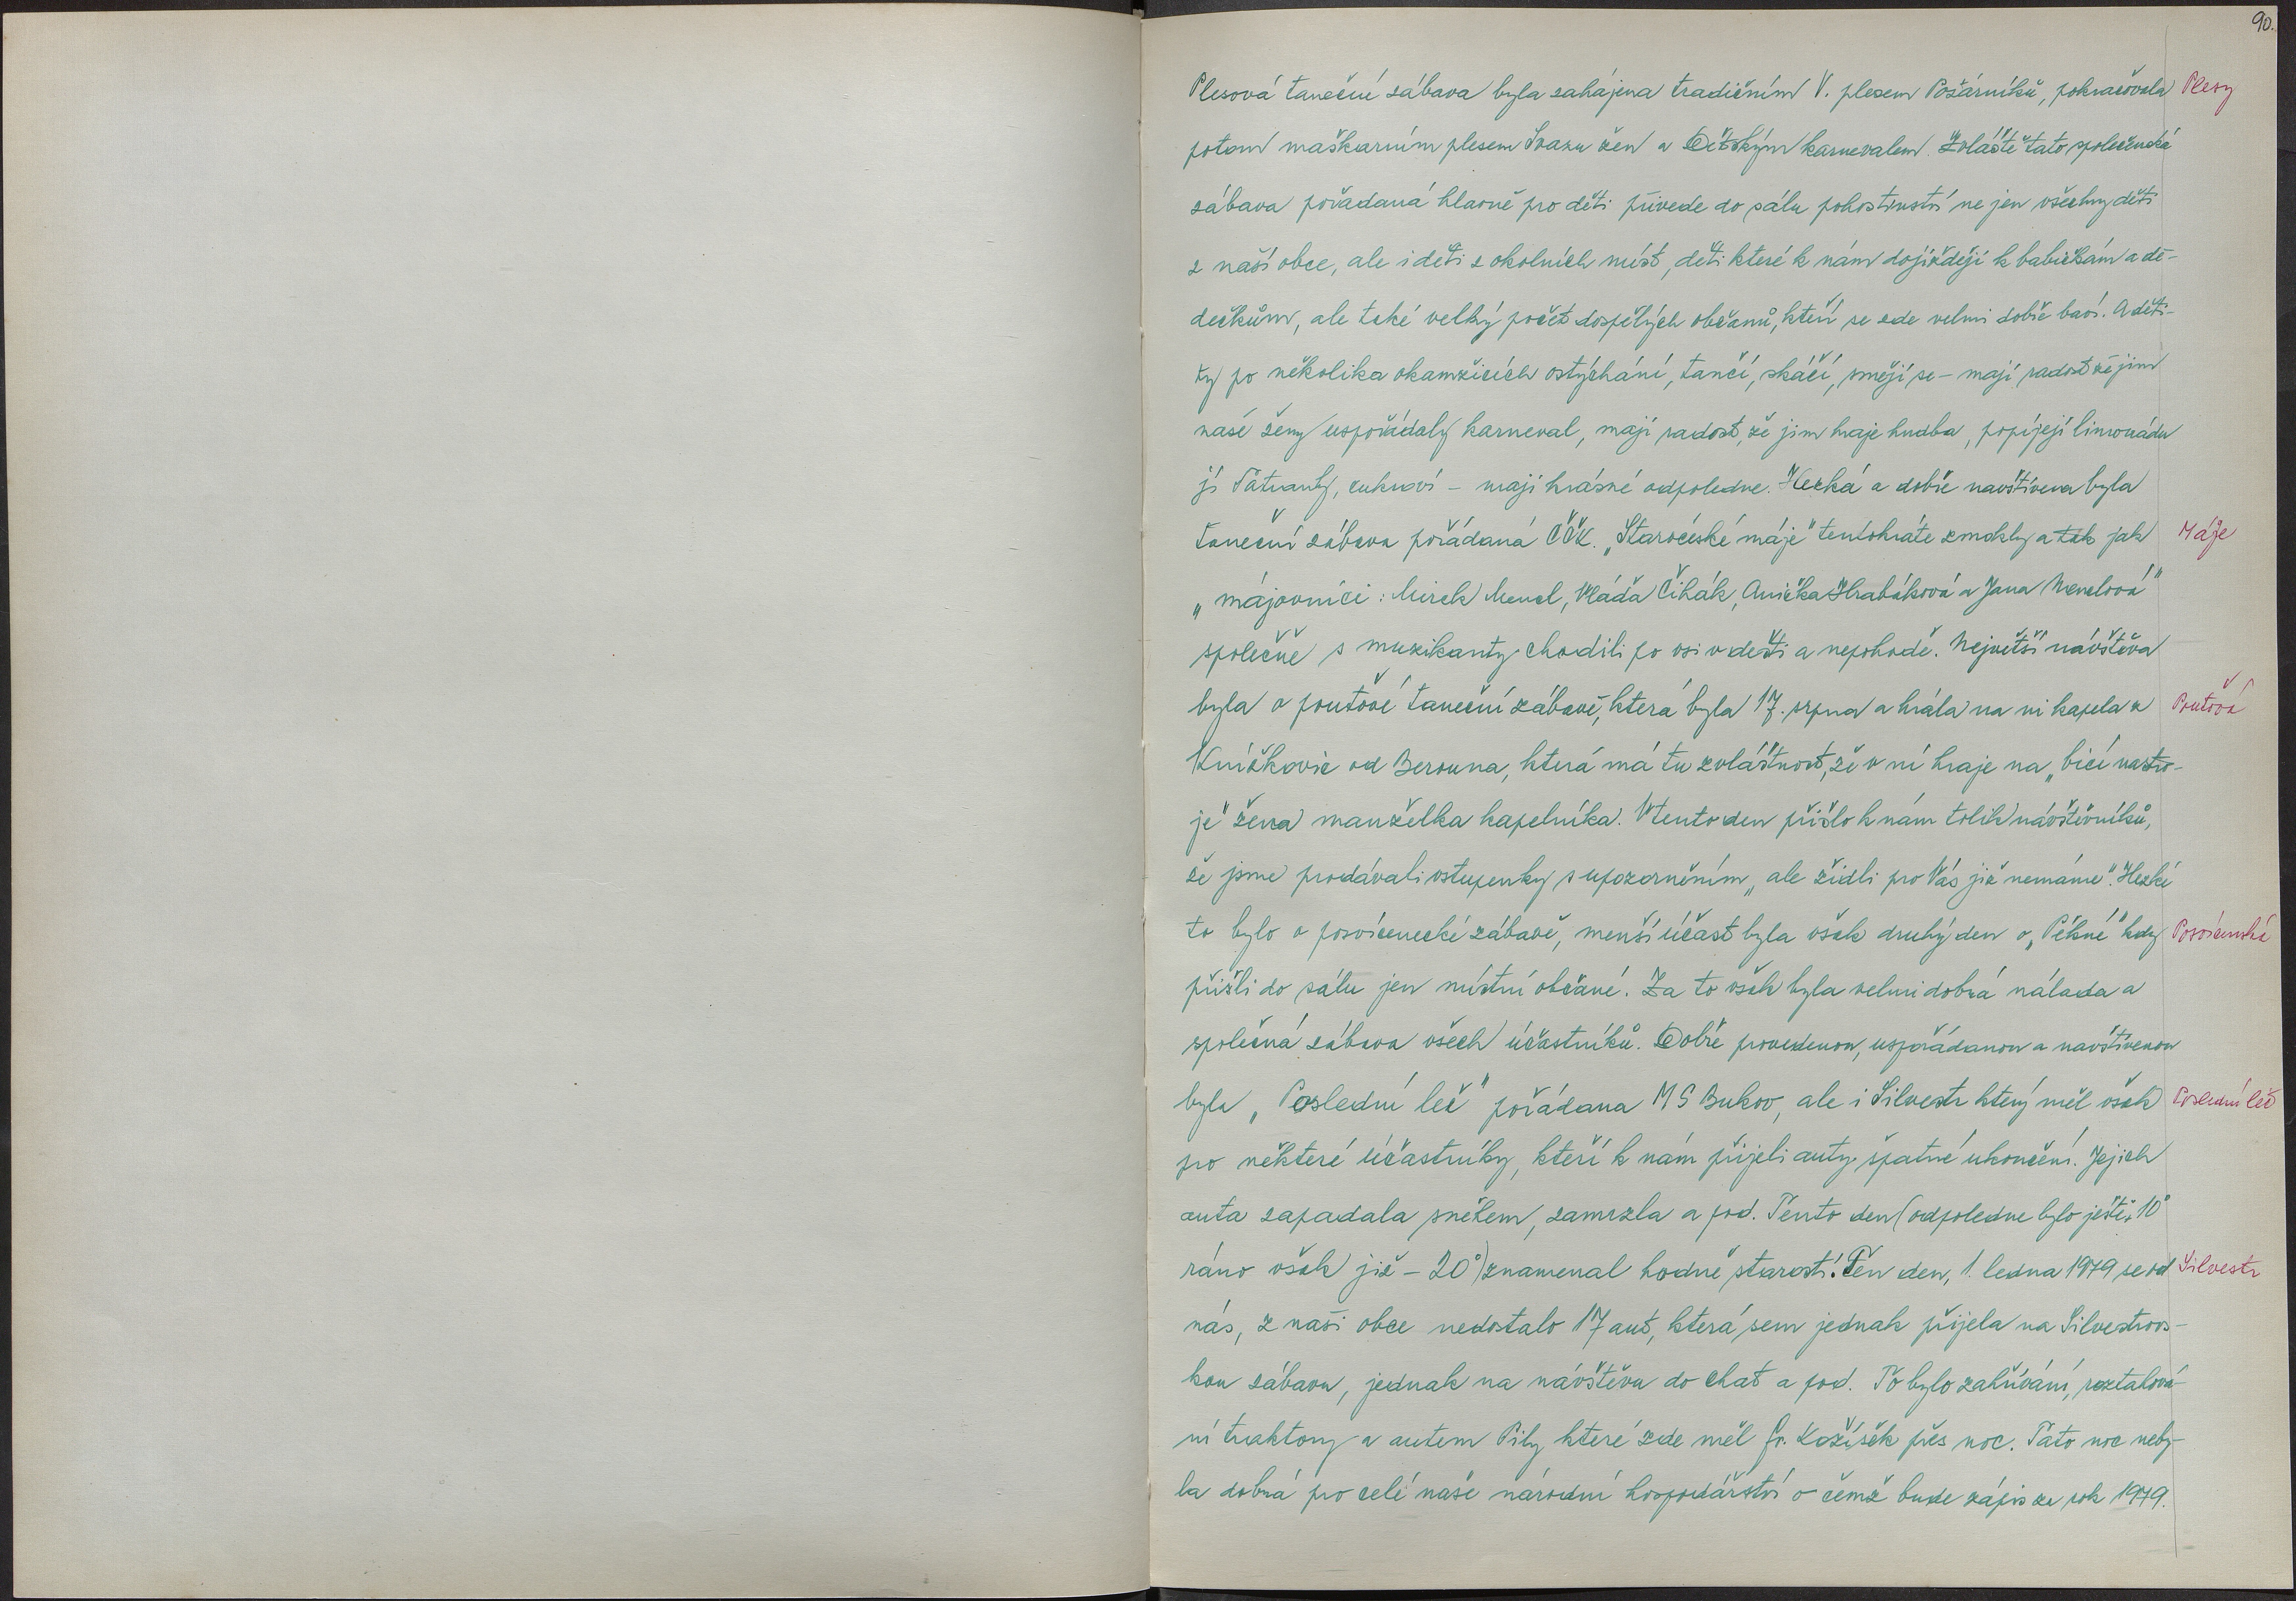 90.
Plesová taneční zábava byla zahájena tradičním V. plesem Požárníků, pokračovala Plesy
potom maškarním plesem Svazu žen a Dětským karnevalem. Zvláště tato společenská
zábava pořádaná hlavně pro děti přivede do sálu pohostinství ne jen všechny děti
z naší obce, ale i děti z okolních míst, děti které k nám dojíždějí k babičkám a dě-
dečkům, ale také velký počet dospělých občanů, kteří se zde velmi dobře baví. A děti-
ty po několika okamžicích ostýchání, tančí, skáčí, smějí se - mají radost že jim
naše ženy uspořádaly karneval, mají radost, že jim hraje hudba, popíjejí limonádu
jí Tatranky, cukroví - mají krásné odpoledne. Hezká a dobře navštívena byla
taneční zábava pořádaná ČČK. „Staročeské máje" tentokráte zmokly a tak jak Máje
„májovníci: Mirek Mencl, Vláďa Čihák, Anička Hrabáková a Jana Menclová"
společně s muzikanty chodili po vsi v dešti a nepohodě. Největší návštěva
byla o pouťové taneční zábavě, která byla 17. srpna a hrála na ni kapela z Pouťová
Knížkovic od Berouna, která má tu zvláštnost, že v ní hraje na „bicí nástro-
je" žena manželka kapelníka. V tento den přišlo k nám tolik návštěvníků,
že jsme prodávali vstupenky s upozorněním „ale židli pro Vás již nemáme". Hezké
to bylo o posvícenecké zábavě, menší účast byla však druhý den o „Pěkné" kdy Posvícenská
přišli do sálu jen místní občané. Za to však byla velmi dobrá nálada a
společná zábava všech účastníků. Dobře provedenou, uspořádanou a navštívenou
byla „Poslední leč" pořádana MS Bukov, ale i Silvestr který měl však Poslední leč
pro některé účastníky, kteří k nám přijeli auty špatné ukončení. Jejich
auta zapadala sněhem, zamrzla a pod. Tento den (odpoledne bylo ještě + 10°
ráno však již - 20°) znamenal hodně starostí. Ten den, 1. ledna 1979 se od Silvestr
nás, z naší obce nedostalo 17 aut, která sem jednak přijela na Silvestrovs-
kou zábavu, jednak na návštěvu do chat a pod. To bylo zahřívání, roztahová-
ní traktory a autem Pily které zde měl Fr. Kožíšek přes noc. Tato noc neby-
la dobrá pro celé naše národní hospodářství o čemž bude zápis za rok 1979.